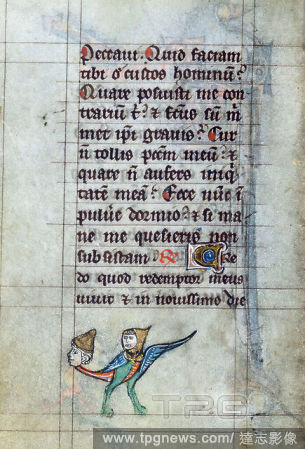 Peccaui. Quid faciam
tibi o custos hominū?
Quare posuisti me con
trariū t̄? ⁊ fcūs sū m̄
met ip̄i grauis? Cur
n̄ tollis pccm̄ meū? ⁊
quare n̄ aufers iniq̄
tatē meā? Ecce nūc ī
puluē dormio? ⁊ si ma
ne me quesieris non
subsistam. R̄ Cre
do quod redemptor meus
uiuit ⁊ in nouissimo die
TPG
www.tpgnews.com/ 達志影像